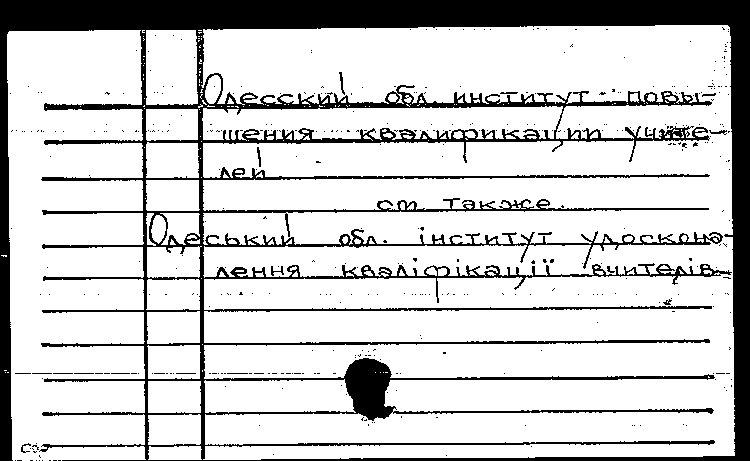 Одесский обл. институт повы-
шения квалификации учите-
лей
см также.
Одеський обл. інститут удоскона-
лення кваліфікації вчителів